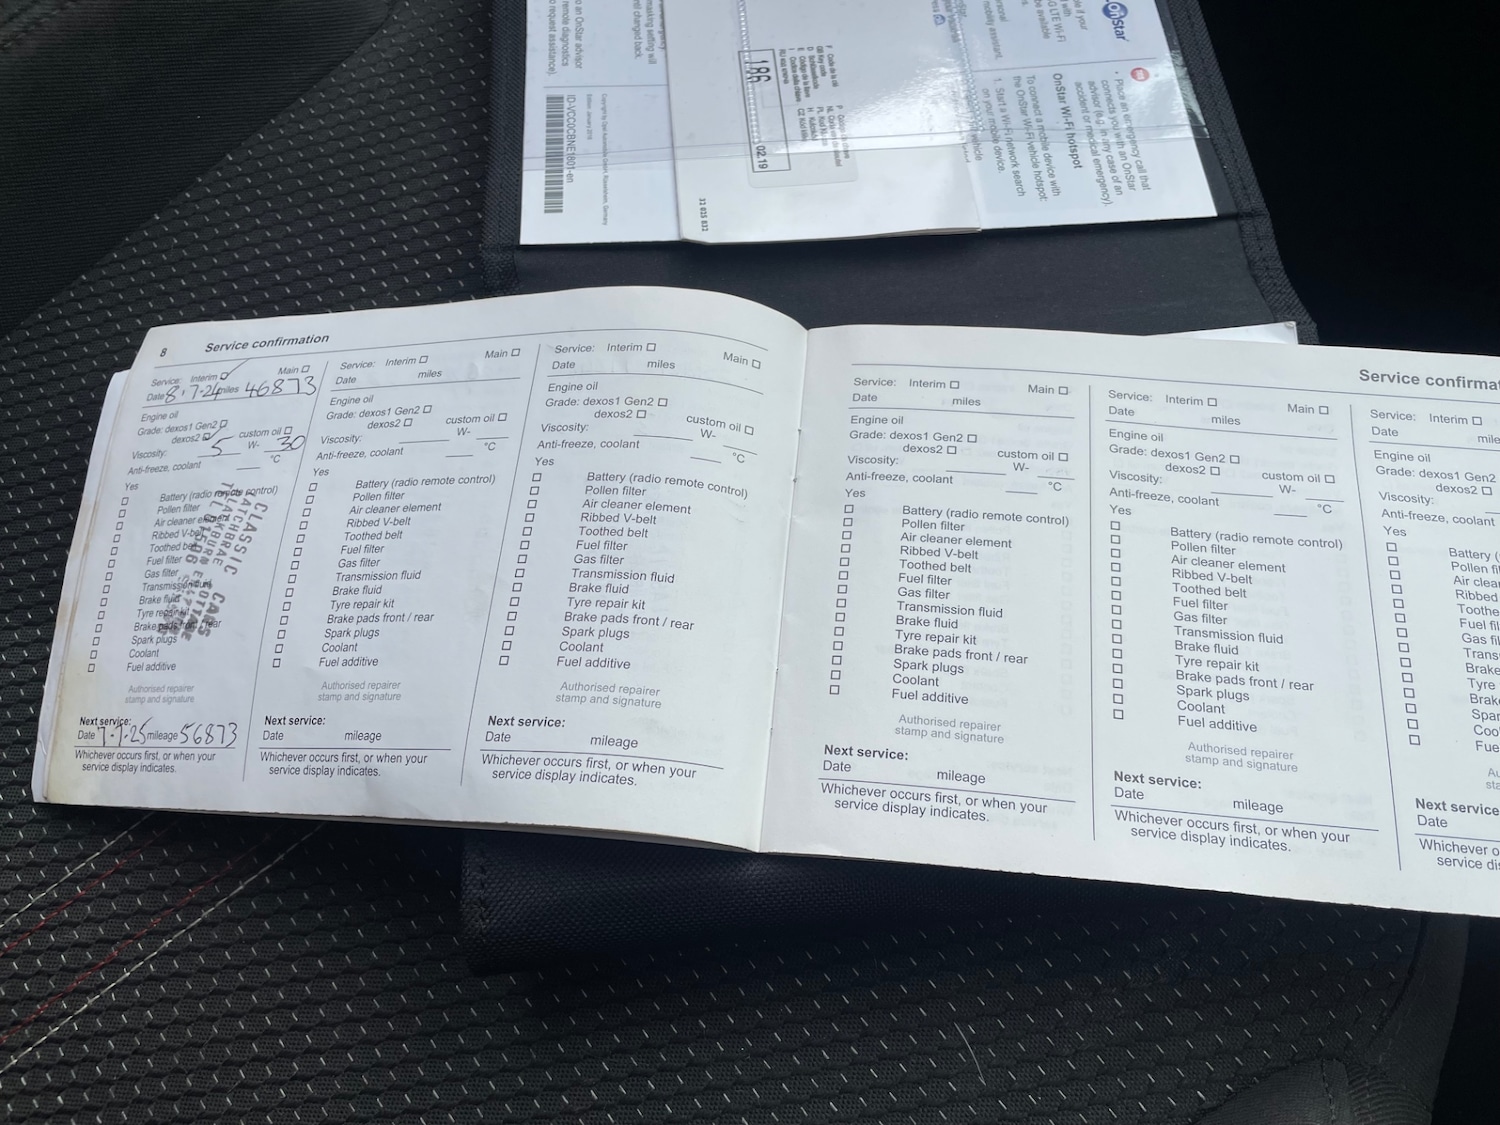 OnStar
e if your
d with
G LTE Wi-Fi
be available
• Place an emergency call that
connects you with an OnStar
advisor (e.g. in any case of an
accident or medical emergency).
OnStar Wi-Fi hotspot
To connect a mobile device with
the OnStar Wi-Fi vehicle hotspot:
1. Start a Wi-Fi network search
on your mobile device.
mobility assistant.
186
02.19
31 015 832
masking setting will
changed back.
to an OnStar advisor
remote diagnostics
request assistance).
ID-VCC0CBNE1801-en
8 Service confirmation
Service: Interim Main
Date 8.7.24 miles 46873
Engine oil
Grade: dexos1 Gen2
dexos2 custom oil
Viscosity: 5 W- 30
Anti-freeze, coolant °C
Yes
Battery (radio remote control)
Pollen filter
Air cleaner element
Ribbed V-belt
Toothed belt
Fuel filter
Gas filter
Transmission fluid
Brake fluid
Tyre repair kit
Brake pads front / rear
Spark plugs
Coolant
Fuel additive
CLASSIC CARS
Authorised repairer
stamp and signature
Next service:
Date 7.7.25 mileage 56873
Whichever occurs first, or when your
service display indicates.
Service: Interim Main
Date miles
Engine oil
Grade: dexos1 Gen2
dexos2 custom oil
Viscosity: W-
Anti-freeze, coolant °C
Yes
Battery (radio remote control)
Pollen filter
Air cleaner element
Ribbed V-belt
Toothed belt
Fuel filter
Gas filter
Transmission fluid
Brake fluid
Tyre repair kit
Brake pads front / rear
Spark plugs
Coolant
Fuel additive
Authorised repairer
stamp and signature
Next service:
Date mileage
Whichever occurs first, or when your
service display indicates.
Service: Interim Main
Date miles
Engine oil
Grade: dexos1 Gen2
dexos2 custom oil
Viscosity: W-
Anti-freeze, coolant °C
Yes
Battery (radio remote control)
Pollen filter
Air cleaner element
Ribbed V-belt
Toothed belt
Fuel filter
Gas filter
Transmission fluid
Brake fluid
Tyre repair kit
Brake pads front / rear
Spark plugs
Coolant
Fuel additive
Authorised repairer
stamp and signature
Next service:
Date mileage
Whichever occurs first, or when your
service display indicates.
Service confirma
Service: Interim Main
Date miles
Engine oil
Grade: dexos1 Gen2
dexos2 custom oil
Viscosity: W-
Anti-freeze, coolant °C
Yes
Battery (radio remote control)
Pollen filter
Air cleaner element
Ribbed V-belt
Toothed belt
Fuel filter
Gas filter
Transmission fluid
Brake fluid
Tyre repair kit
Brake pads front / rear
Spark plugs
Coolant
Fuel additive
Authorised repairer
stamp and signature
Next service:
Date mileage
Whichever occurs first, or when your
service display indicates.
Service: Interim Main
Date miles
Engine oil
Grade: dexos1 Gen2
dexos2 custom oil
Viscosity: W-
Anti-freeze, coolant °C
Yes
Battery (radio remote control)
Pollen filter
Air cleaner element
Ribbed V-belt
Toothed belt
Fuel filter
Gas filter
Transmission fluid
Brake fluid
Tyre repair kit
Brake pads front / rear
Spark plugs
Coolant
Fuel additive
Authorised repairer
stamp and signature
Next service:
Date mileage
Whichever occurs first, or when your
service display indicates.
Service: Interim
Date mile
Engine oil
Grade: dexos1 Gen2
dexos2
Viscosity:
Anti-freeze, coolant
Yes
Battery (
Pollen fil
Air clea
Ribbed
Toothe
Fuel fil
Gas fil
Trans
Brake
Tyre
Brak
Spar
Coo
Fue
Next service
Date
Whichever o
service di